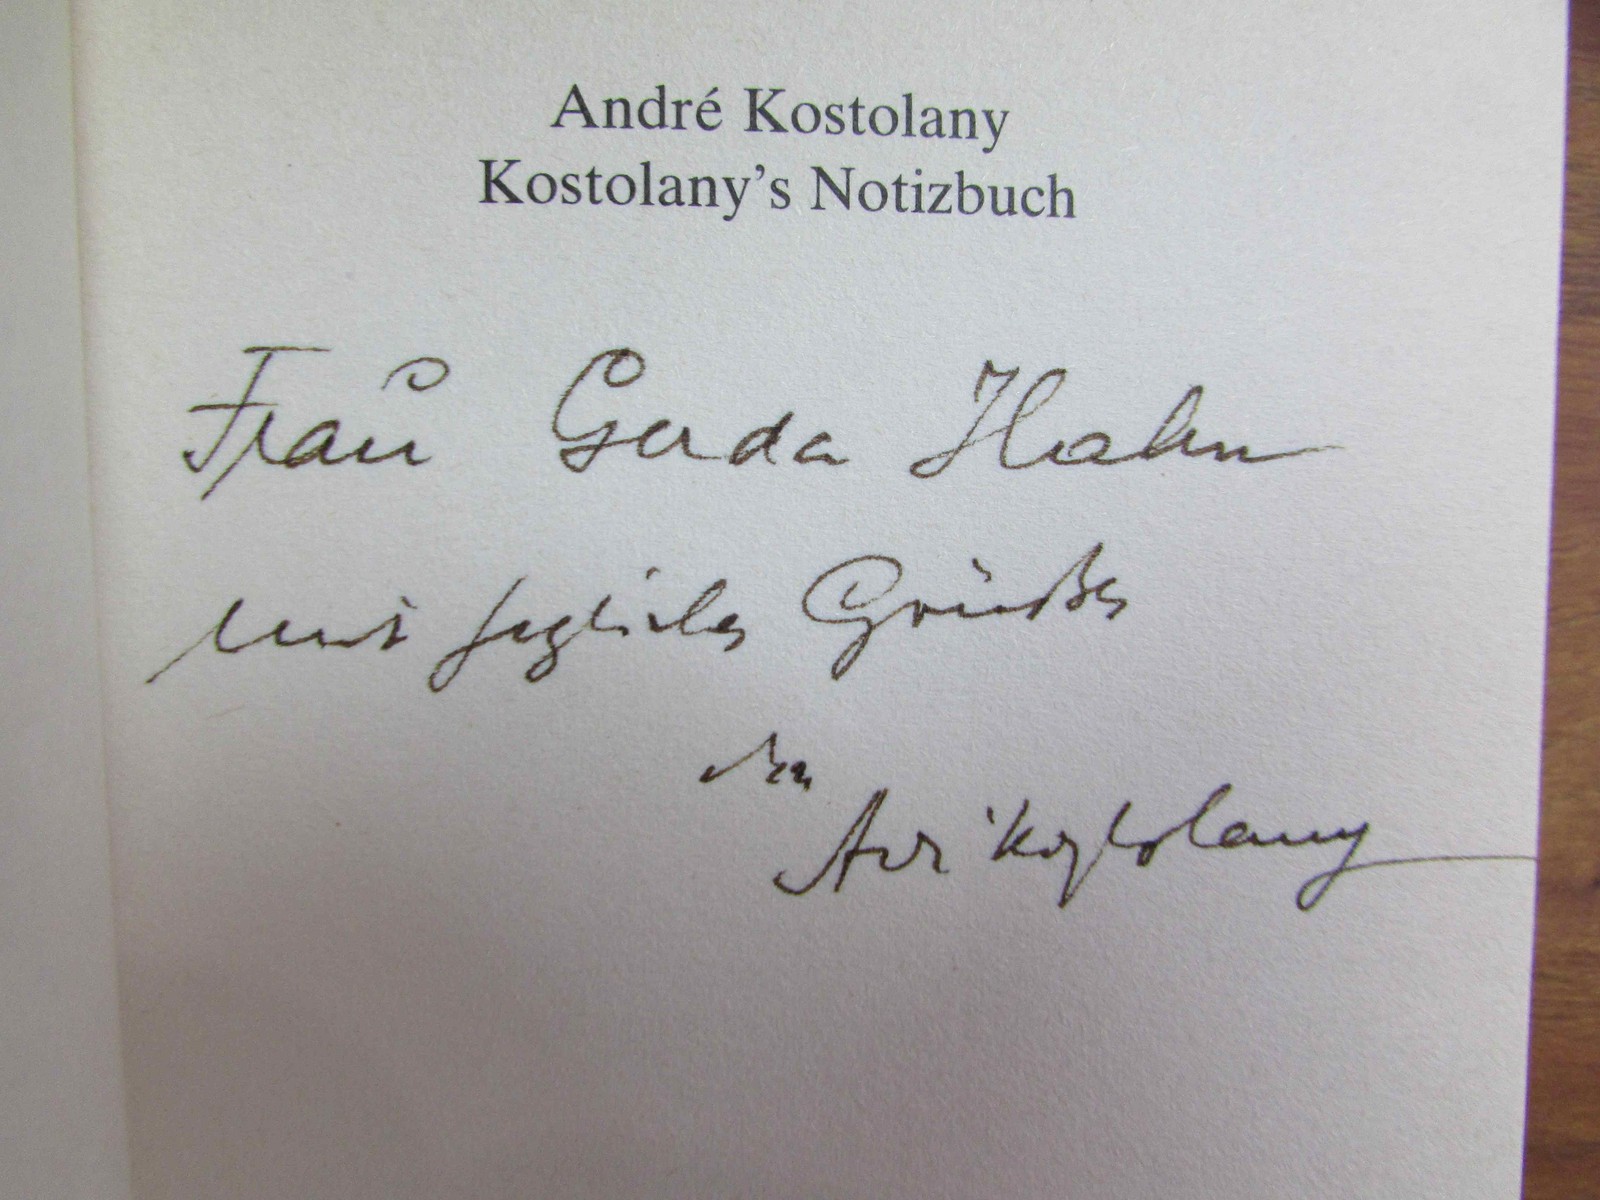 André Kostolany
Kostolany's Notizbuch
Frau Gerda Hahn
mit herzlichen Grüßen
Kostolany